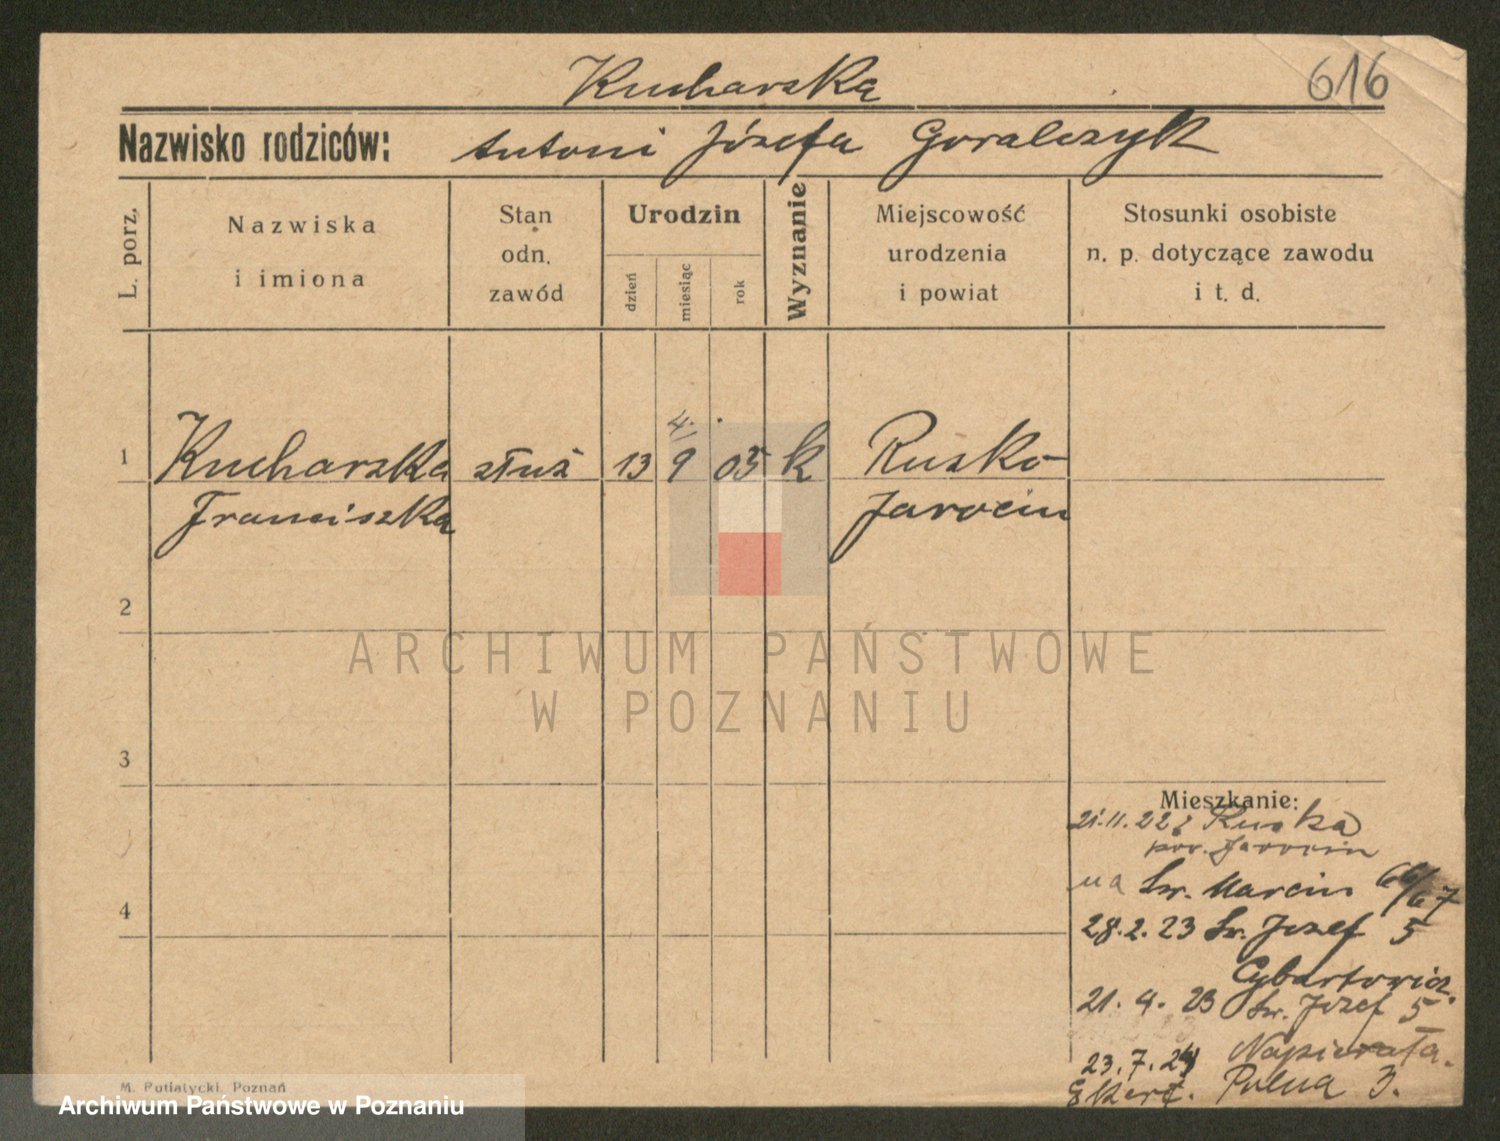 Kucharska
616
Nazwisko rodziców: Antoni Józefa Goralczyk
L. porz.
Nazwiska
i imiona
Stan
odn.
zawód
Urodzin
dzień
miesiąc
rok
Wyznanie
Miejscowość
urodzenia
i powiat
Stosunki osobiste
n. p. dotyczące zawodu
i t. d.
4.
1 Kucharska służ 13 9 05 k Rusko
Franciszka Jarocin
2
ARCHIWUM PAŃSTWOWE
W POZNANIU
3
Mieszkanie:
21.11.22 z Ruska
pow. Jarocin
na Św. Marcin 66/67
4
28.2.23 Św. Józef 5
Cybartowicz.
21.4.23 Św. Józef 5
23.7.24 Napierała.
Ekert. Polna 3.
M. Putiatycki, Poznań
Archiwum Państwowe w Poznaniu